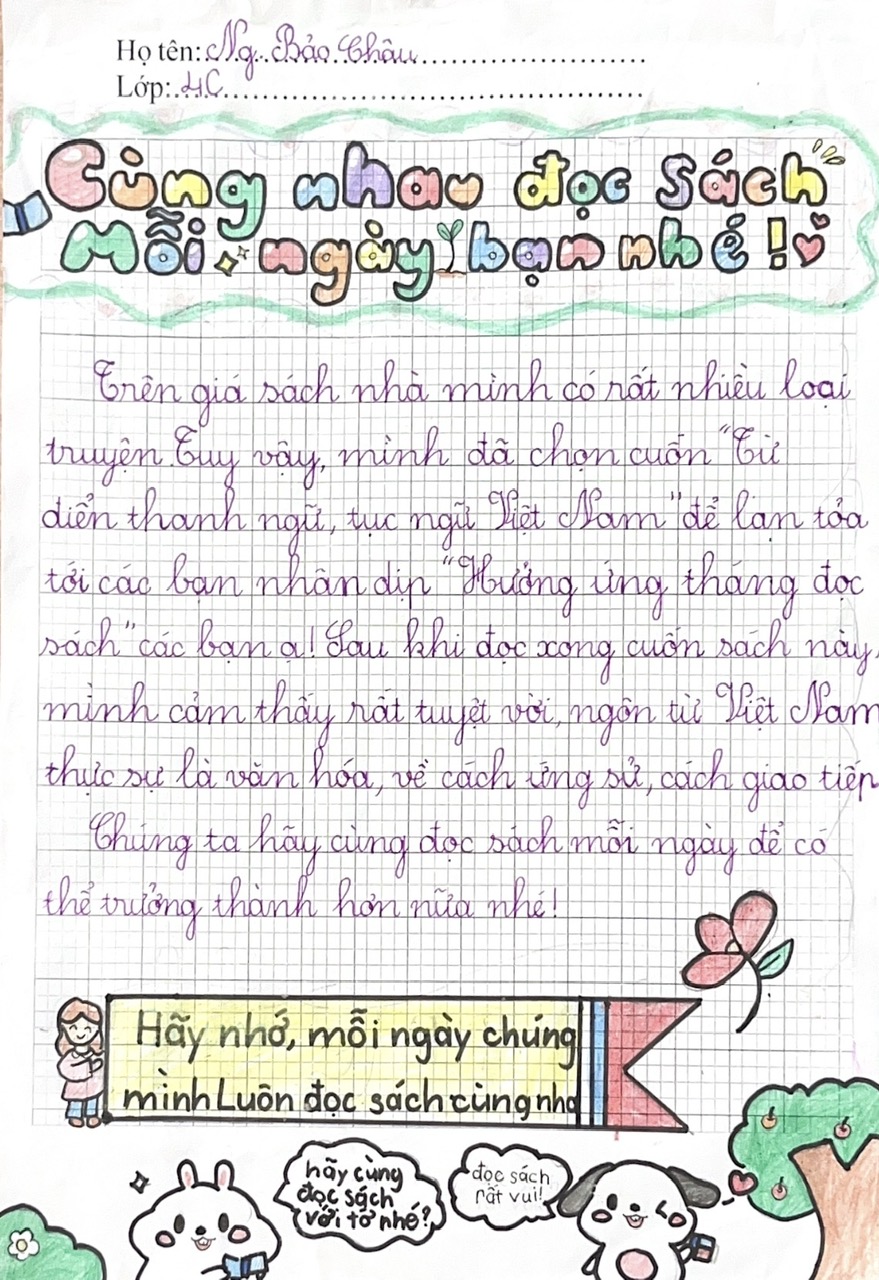 Họ tên: Ng. Bảo Châu
Lớp: 4C
Cùng nhau đọc sách
Mỗi ngày bạn nhé!
Trên giá sách nhà mình có rất nhiều loại
truyện. Tuy vậy, mình đã chọn cuốn "Từ
điển thanh ngữ, tục ngữ Việt Nam" để lan tỏa
tới các bạn nhân dịp "Hưởng ứng tháng đọc
sách" các bạn ạ! Sau khi đọc xong cuốn sách này,
mình cảm thấy rất tuyệt vời, ngôn từ Việt Nam
thực sự là văn hóa, về cách ứng sử, cách giao tiếp
Chúng ta hãy cùng đọc sách mỗi ngày để có
thể trưởng thành hơn nữa nhé!
Hãy nhớ, mỗi ngày chúng
mình Luôn đọc sách cùng nha
hãy cùng
đọc sách
với tớ nhé?
đọc sách
rất vui!